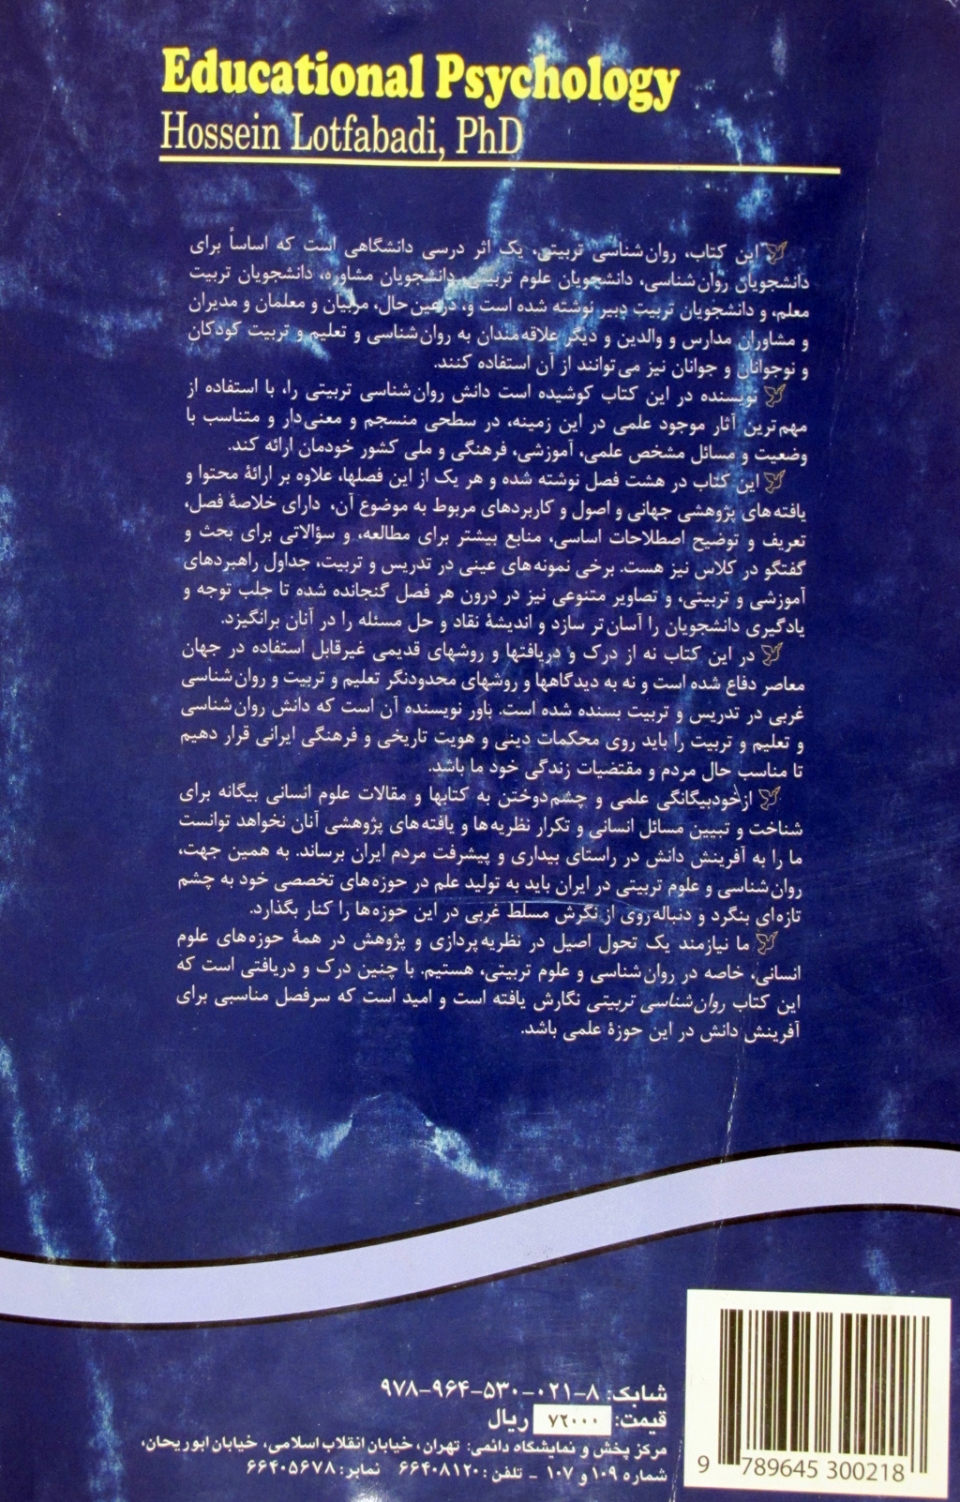 Educational Psychology
Hossein Lotfabadi, PhD
این کتاب، روان‌شناسی تربیتی، یک اثر درسی دانشگاهی است که اساساً برای
دانشجویان روان‌شناسی، دانشجویان علوم تربیتی، دانشجویان مشاوره، دانشجویان تربیت
معلم، و دانشجویان تربیت دبیر نوشته شده است و، درعین‌حال، مربیان و معلمان و مدیران
و مشاوران مدارس و والدین و دیگر علاقه‌مندان به روان‌شناسی و تعلیم و تربیت کودکان
و نوجوانان و جوانان نیز می‌توانند از آن استفاده کنند.
نویسنده در این کتاب کوشیده است دانش روان‌شناسی تربیتی را، با استفاده از
مهم‌ترین آثار موجود علمی در این زمینه، در سطحی منسجم و معنی‌دار و متناسب با
وضعیت و مسائل مشخص علمی، آموزشی، فرهنگی و ملی کشور خودمان ارائه کند.
این کتاب در هشت فصل نوشته شده و هر یک از این فصلها، علاوه بر ارائهٔ محتوا و
یافته‌های پژوهشی جهانی و اصول و کاربردهای مربوط به موضوع آن، دارای خلاصهٔ فصل،
تعریف و توضیح اصطلاحات اساسی، منابع بیشتر برای مطالعه، و سؤالاتی برای بحث و
گفتگو در کلاس نیز هست. برخی نمونه‌های عینی در تدریس و تربیت، جداول راهبردهای
آموزشی و تربیتی، و تصاویر متنوعی نیز در درون هر فصل گنجانده شده تا جلب توجه و
یادگیری دانشجویان را آسان‌تر سازد و اندیشهٔ نقاد و حل مسئله را در آنان برانگیزد.
در این کتاب نه از درک و دریافتها و روشهای قدیمی غیرقابل استفاده در جهان
معاصر دفاع شده است و نه به دیدگاهها و روشهای محدودنگر تعلیم و تربیت و روان‌شناسی
غربی در تدریس و تربیت بسنده شده است. باور نویسنده آن است که دانش روان‌شناسی
و تعلیم و تربیت را باید روی محکمات دینی و هویت تاریخی و فرهنگی ایرانی قرار دهیم
تا مناسب حال مردم و مقتضیات زندگی خود ما باشد.
ازخودبیگانگی علمی و چشم‌دوختن به کتابها و مقالات علوم انسانی بیگانه برای
شناخت و تبیین مسائل انسانی و تکرار نظریه‌ها و یافته‌های پژوهشی آنان نخواهد توانست
ما را به آفرینش دانش در راستای بیداری و پیشرفت مردم ایران برساند. به همین جهت،
روان‌شناسی و علوم تربیتی در ایران باید به تولید علم در حوزه‌های تخصصی خود به چشم
تازه‌ای بنگرد و دنباله‌روی از نگرش مسلط غربی در این حوزه‌ها را کنار بگذارد.
ما نیازمند یک تحول اصیل در نظریه‌پردازی و پژوهش در همهٔ حوزه‌های علوم
انسانی، خاصه در روان‌شناسی و علوم تربیتی، هستیم. با چنین درک و دریافتی است که
این کتاب روان‌شناسی تربیتی نگارش یافته است و امید است که سرفصل مناسبی برای
آفرینش دانش در این حوزهٔ علمی باشد.
شابک: ۸-۰۲۱-۵۳۰-۹۶۴-۹۷۸
قیمت: ۷۲۰۰۰ ریال
مرکز پخش و نمایشگاه دائمی: تهران، خیابان انقلاب اسلامی، خیابان ابوریحان،
شماره ۱۰۹ و ۱۰۷ - تلفن: ۶۶۴۰۸۱۲۰ نمابر: ۶۶۴۰۵۶۷۸
9 789645 300218